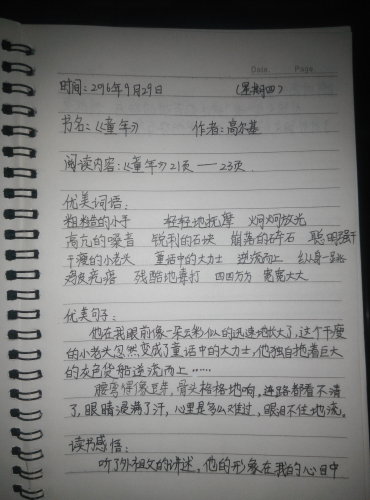 Date. Page
时间：2016年9月29日 （星期四）
书名：《童年》 作者：高尔基
阅读内容：《童年》21页——23页.
优美词语：
粗糙的小手 轻轻地抚摩 炯炯放光
高亢的嗓音 锐利的石块 崩落的碎石 聪明强干
干瘦的小老头 童话中的大力士 逆流而上 纵身一跳
残酷地毒打 四四方方 宽宽大大
优美句子：
他在我眼前像一朵云彩似的迅速地长大了，这个干瘦
的小老头忽然变成了童话中的大力士，他独自拖着巨大
的灰色货船逆流而上……
腰弯得像豆芽，骨头格格地响，连路都看不清
了，眼睛浸满了汗，心里是多么难过，眼泪不住地流。
读书感悟：
听了外祖父的讲述，他的形象在我的心目中